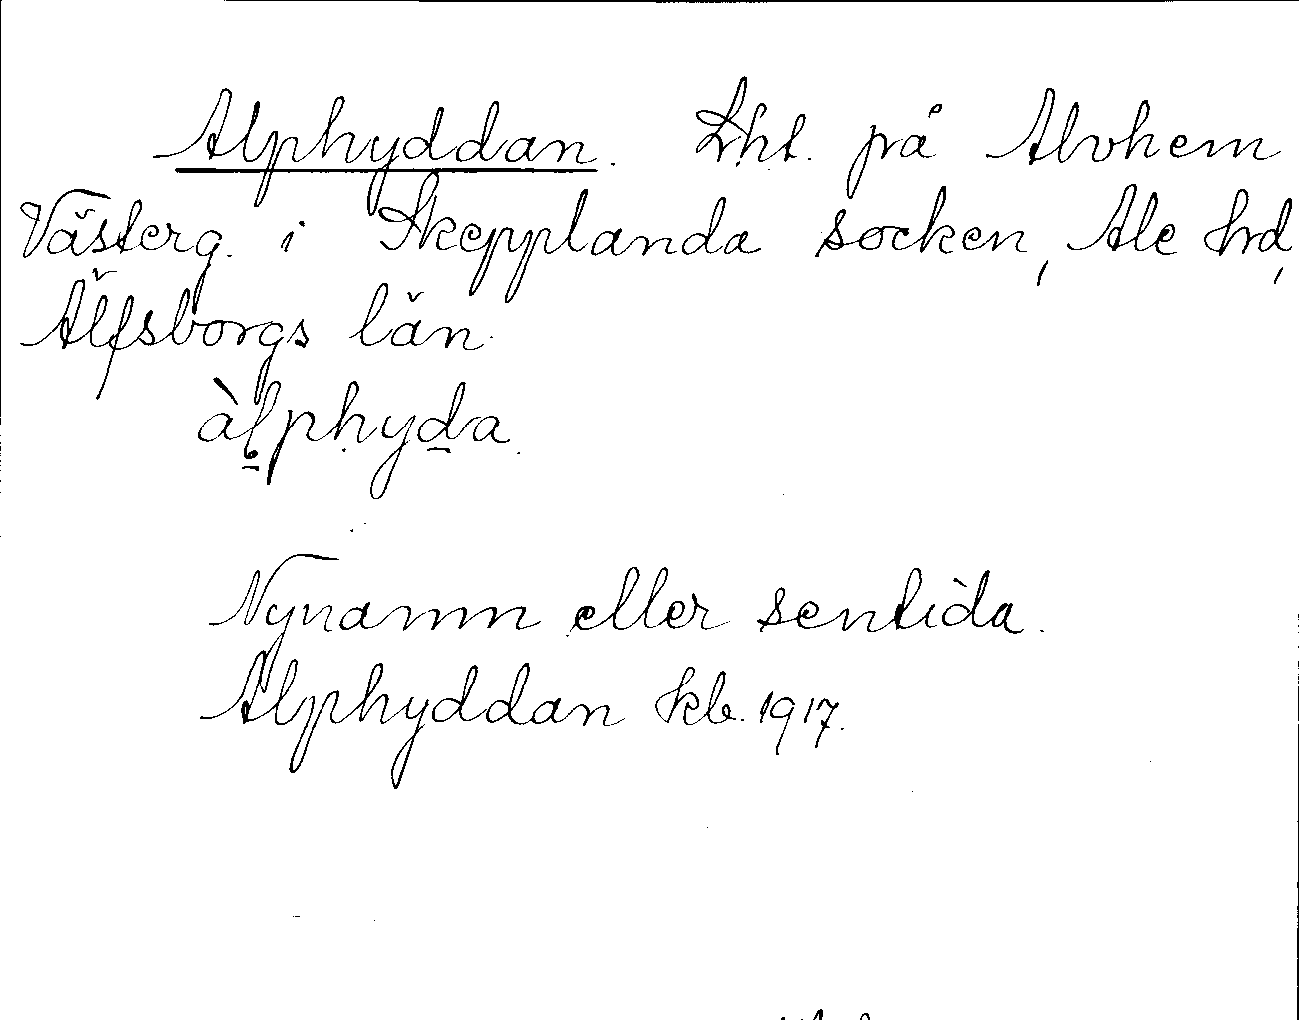 Alphyddan. Lht. på Alvhem
Västerg. i Skepplanda socken, Ale hrd,
Älfsborgs län.
àlphyda.
Nynamn eller sentida.
Alphyddan kb. 1917.